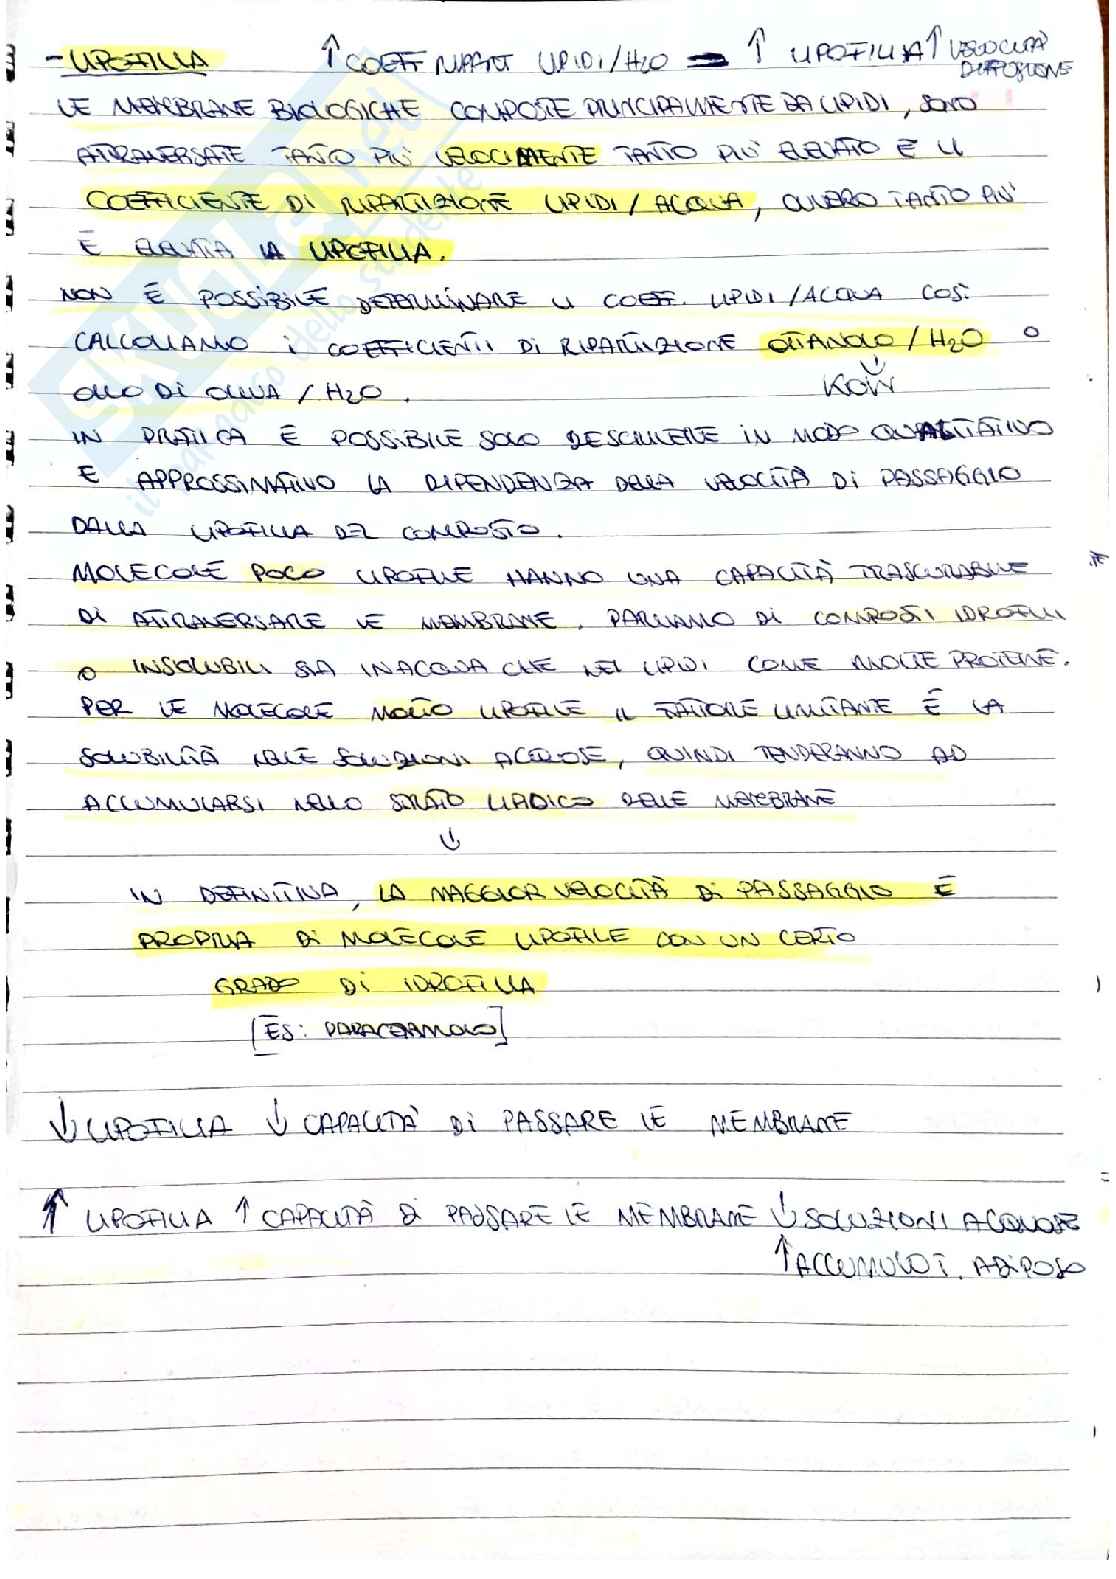 - LIPOFILIA ↑ COEFF RIPART LIPIDI/H2O = ↑ LIPOFILIA ↑ VELOCITÀ
DIFFUSIONE
LE MEMBRANE BIOLOGICHE COMPOSTE PRINCIPALMENTE DA LIPIDI, SONO
ATTRAVERSATE TANTO PIÙ VELOCEMENTE TANTO PIÙ ELEVATO È IL
COEFFICIENTE DI RIPARTIZIONE LIPIDI/ACQUA, OVVERO TANTO PIÙ
È ELEVATA LA LIPOFILIA.
NON È POSSIBILE DETERMINARE IL COEFF. LIPIDI/ACQUA COSÌ
CALCOLIAMO I COEFFICIENTI DI RIPARTIZIONE OTTANOLO/H2O O
OLIO DI OLIVA/H2O. KOW
IN PRATICA È POSSIBILE SOLO DESCRIVERE IN MODO QUALITATIVO
E APPROSSIMATIVO LA DIPENDENZA DELLA VELOCITÀ DI PASSAGGIO
DALLA LIPOFILIA DEL COMPOSTO.
MOLECOLE POCO LIPOFILE HANNO UNA CAPACITÀ TRASCURABILE
DI ATTRAVERSARE LE MEMBRANE. PARLIAMO DI COMPOSTI IDROFILI
O INSOLUBILI SIA IN ACQUA CHE NEI LIPIDI COME MOLTE PROTEINE.
PER LE MOLECOLE MOLTO LIPOFILE IL FATTORE LIMITANTE È LA
SOLUBILITÀ NELLE SOLUZIONI ACQUOSE, QUINDI TENDERANNO AD
ACCUMULARSI NELLO STRATO LIPIDICO DELLE MEMBRANE
↓
IN DEFINITIVA, LA MAGGIOR VELOCITÀ DI PASSAGGIO È
PROPRIA DI MOLECOLE LIPOFILE CON UN CERTO
GRADO DI IDROFILIA
[ES: PARACETAMOLO]
↓ LIPOFILIA ↓ CAPACITÀ DI PASSARE LE MEMBRANE
↑ LIPOFILIA ↑ CAPACITÀ DI PASSARE LE MEMBRANE ↓ SOLUZIONI ACQUOSE
↑ ACCUMULO T. ADIPOSO
SKUOLA.net
il paradiso dello studente